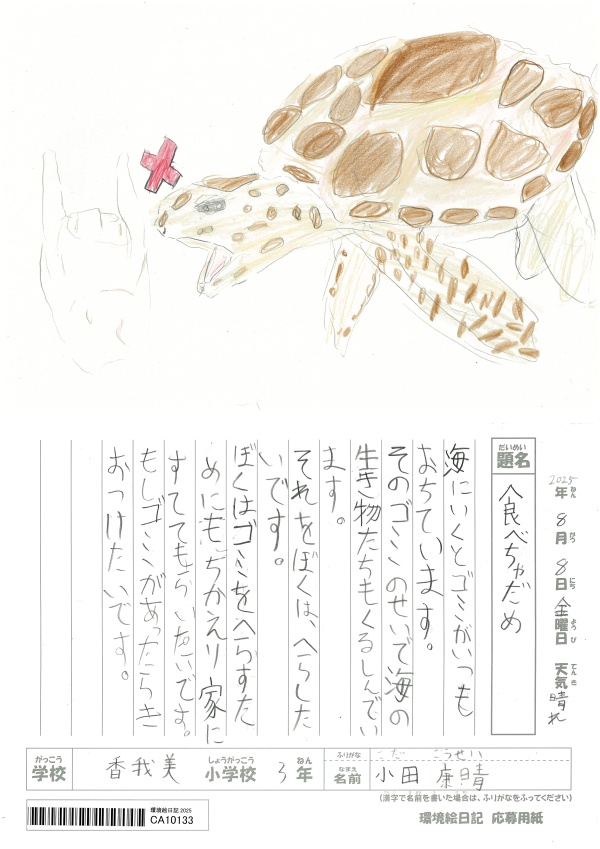 2025年ねん 8月がつ 8日にち 金曜日ようび 天気てんき 晴れ
題名だいめい
食べちゃだめ
海にいくとゴミがいつも
おちています。
そのゴミのせいで海の
生き物たちもくるしんでい
ます。
それをぼくは、へらした
いです。
ぼくはゴミをへらすた
めにもちかえり家に
すててもらいたいです。
もしゴミがあったらき
おつけたいです。
がっこう
学校
香我美
しょうがっこう
小学校
3
ねん
年
ふりがな
こだ こうせい
なまえ
名前
小田 康晴
(漢字で名前を書いた場合は、ふりがなをふってください)
環境絵日記 2025
CA10133
環境絵日記 応募用紙